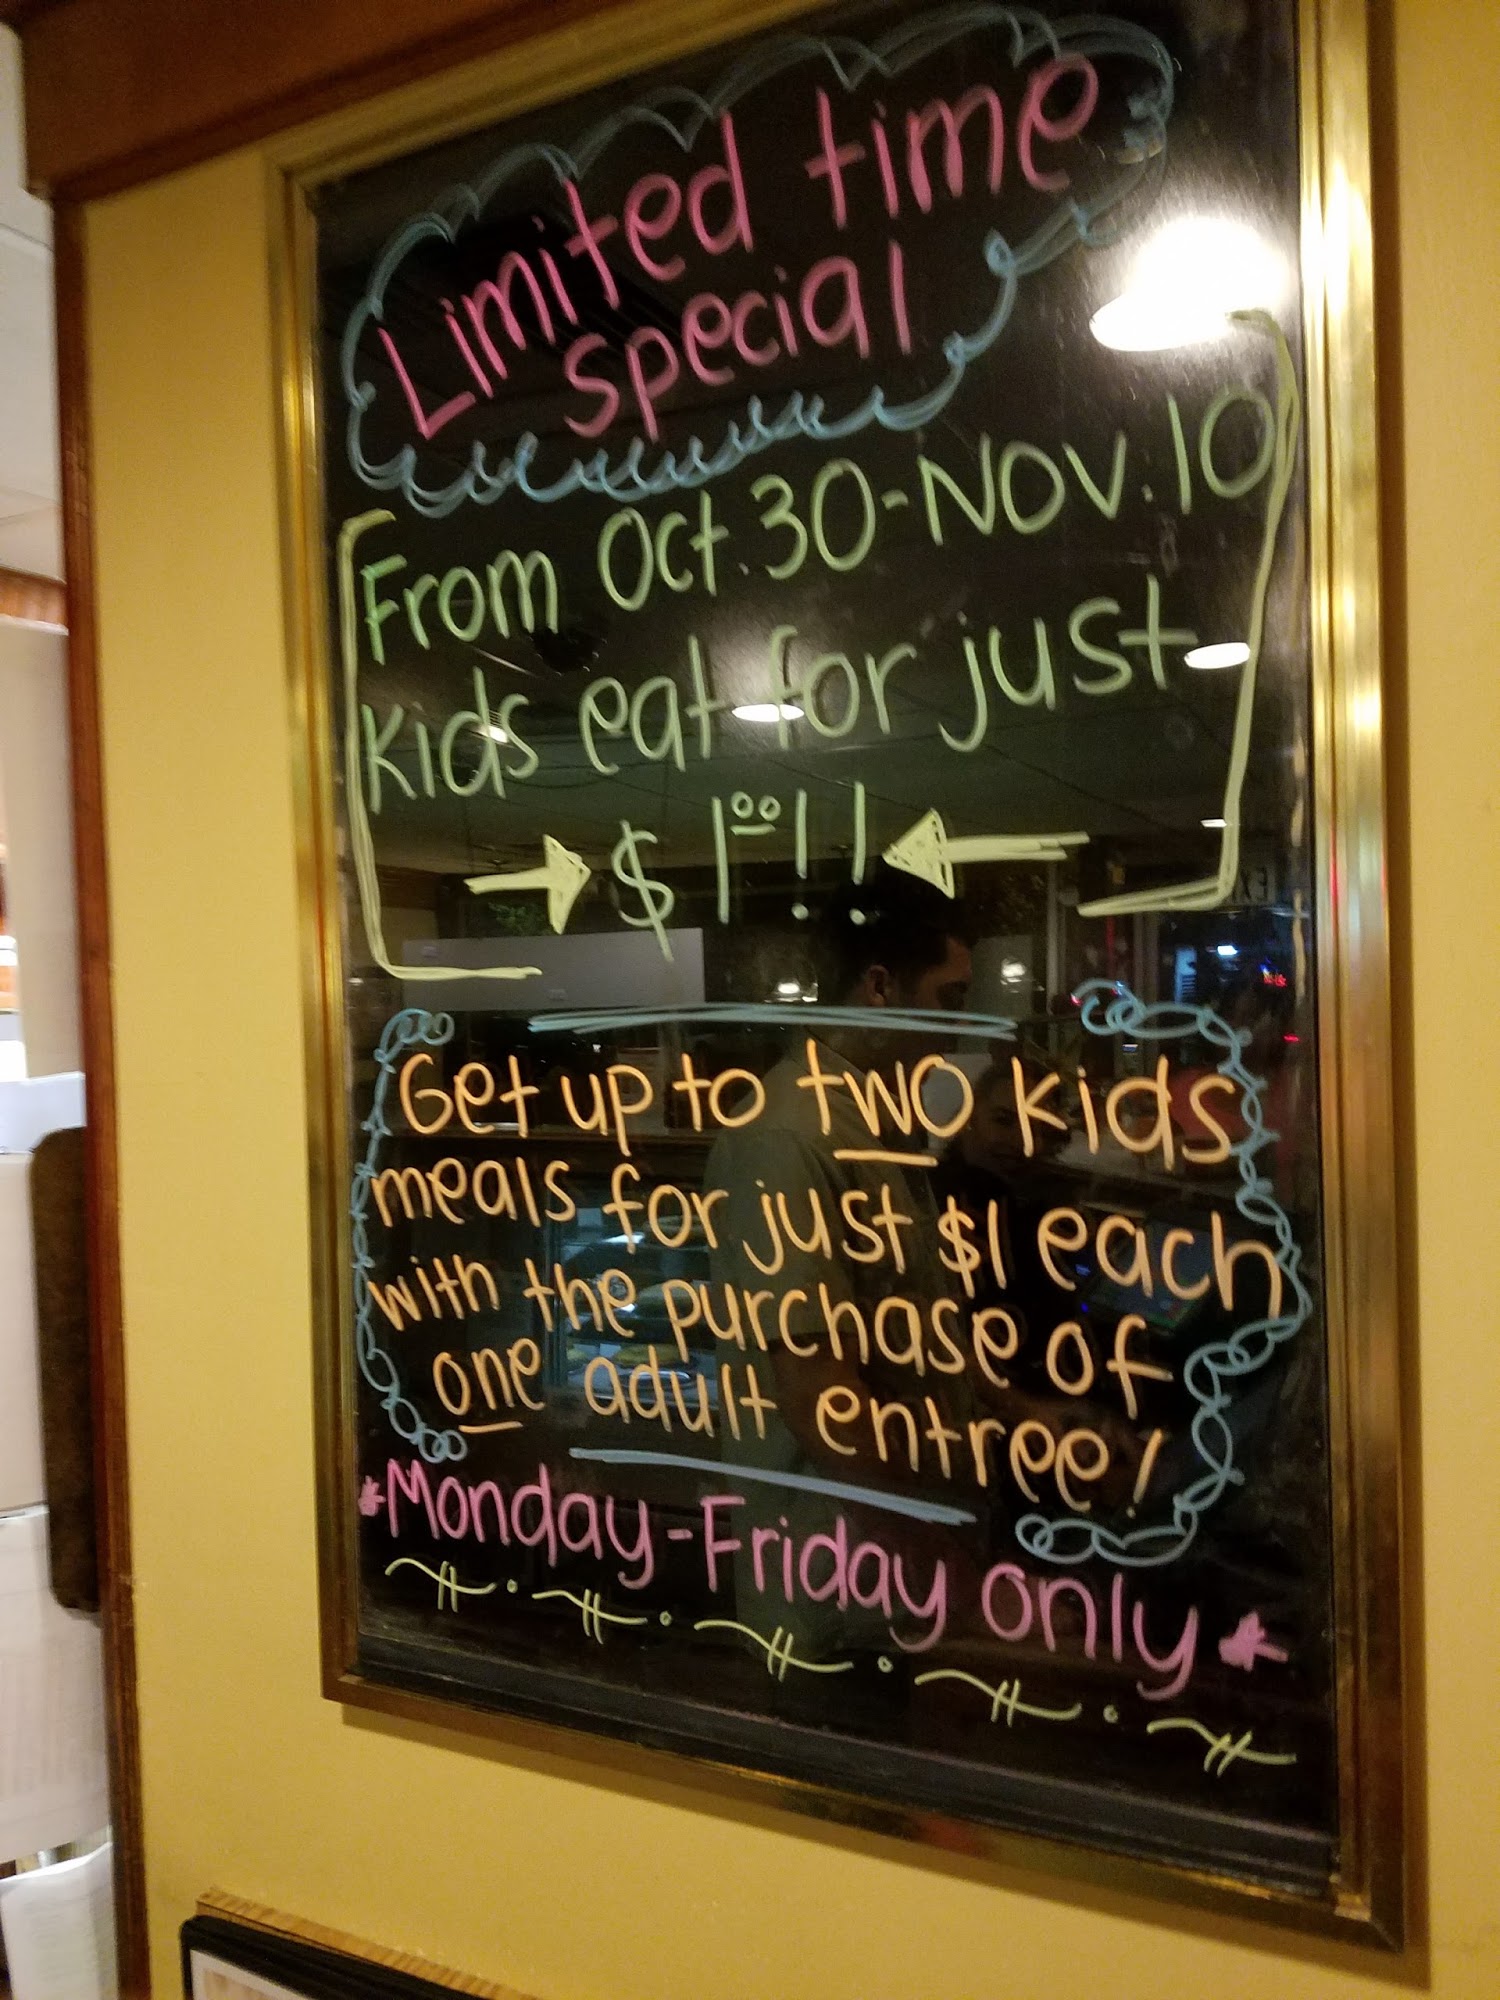 Limited time
special
From Oct.30-Nov.10
Kids eat for just
$1.00!!
Get up to two kids
meals for just $1 each
with the purchase of
one adult entree!
*Monday-Friday only*